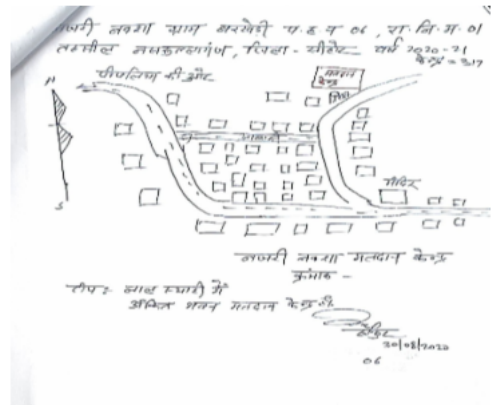 नजरी नक्शा ग्राम बरखेडी प.ह.न 06, रा.नि.म. 01
तहसील नसरुल्लागंज, जिला - सीहोर वर्ष 2020-21
केन्द्र = 317
पीपलिया की ओर
मतदान
केन्द्र
N
मंदिर
S
नजरी नक्शा मतदान केन्द्र
क्रमांक -
टीप: लाल स्याही में
अंकित भवन मतदान केन्द्र है
20/08/2020
06